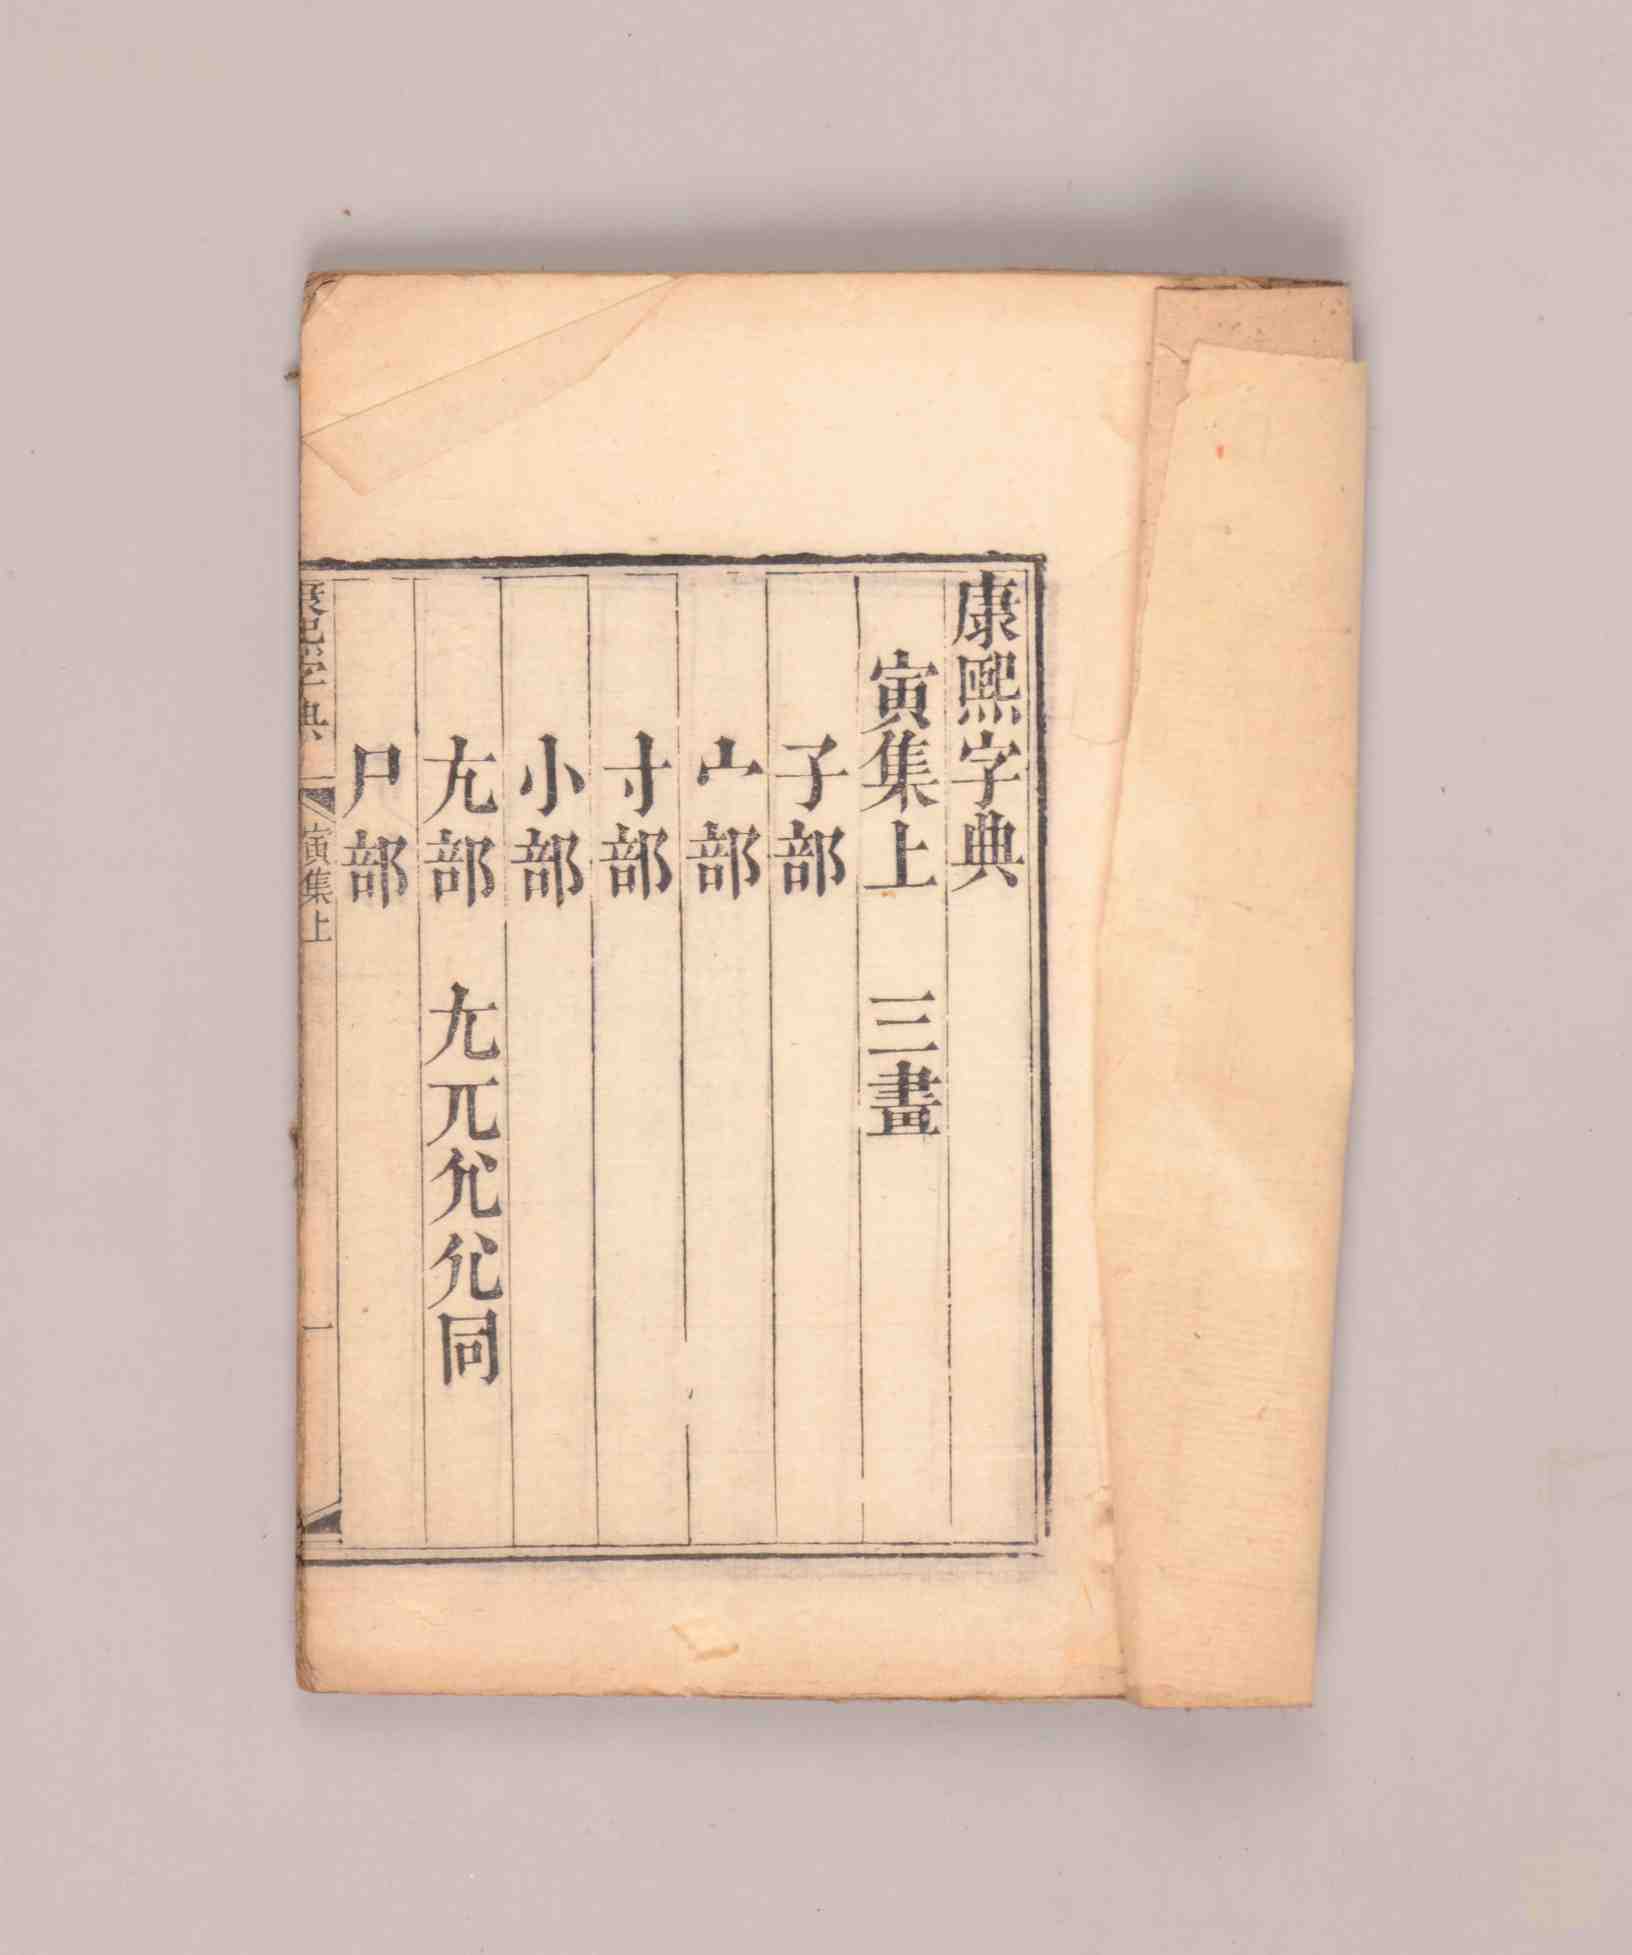 康熙字典
寅集上 三畫
子部
宀部
寸部
小部
尢部 𡯁兀尣𡯂同
尸部
康熙字典 寅集上 一